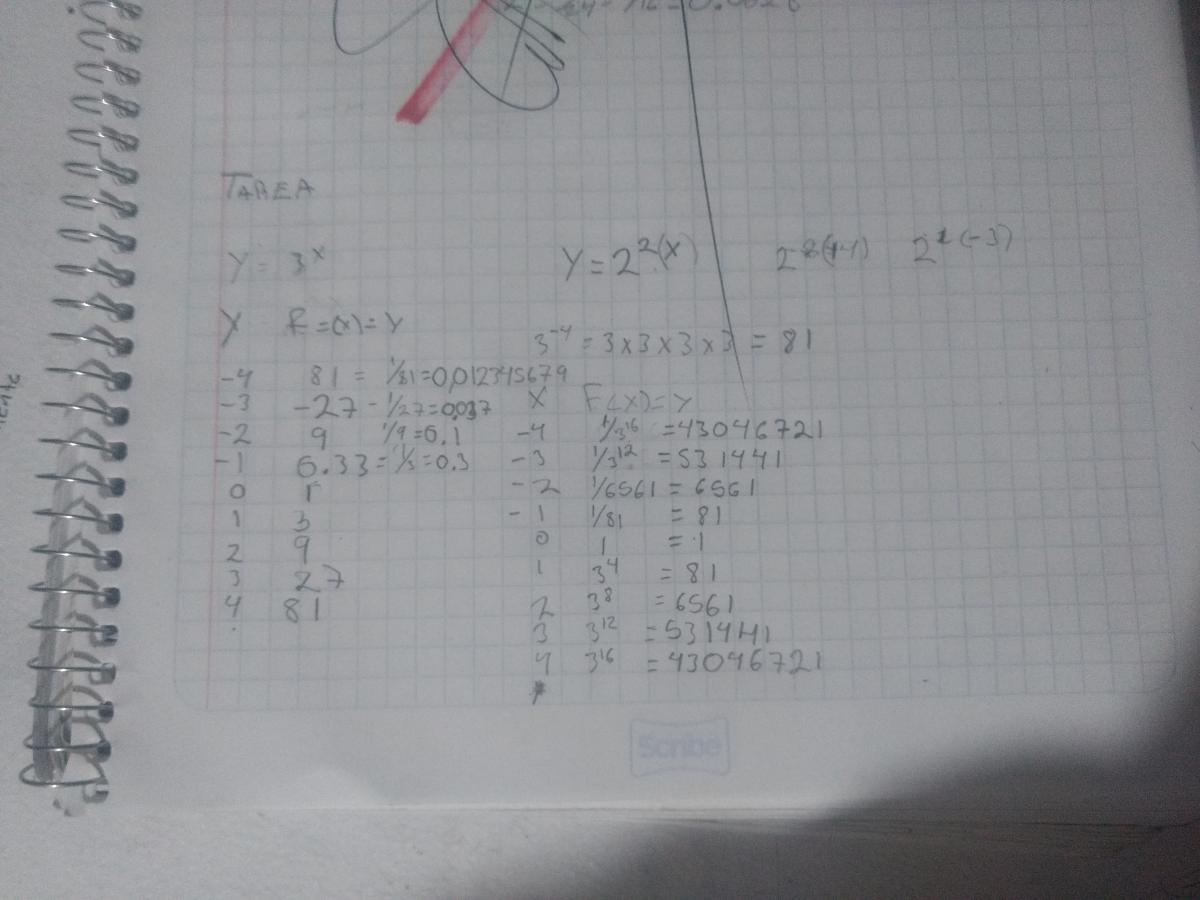 TAREA
Y = 3^x    Y = 2^2(x)    2^-2(-4)    2^2(-3)
Y    F=(x)=Y
3^-4 = 3x3x3x3 = 81
-4    81 = 1/81=0,012345679
-3    -27 - 1/27=0,037    X    F(X)=Y
-2    9    1/9=0.1    -4    1/3^16 =43046721
-1    0.33=1/3=0.3    -3    1/3^12 =531441
0    1    -2    1/6561 = 6561
1    3    -1    1/81 = 81
2    9    0    1 = 1
3    27    1    3^4 = 81
4    81    2    3^8 =6561
3    3^12 =531441
4    3^16 =43046721
Scribe